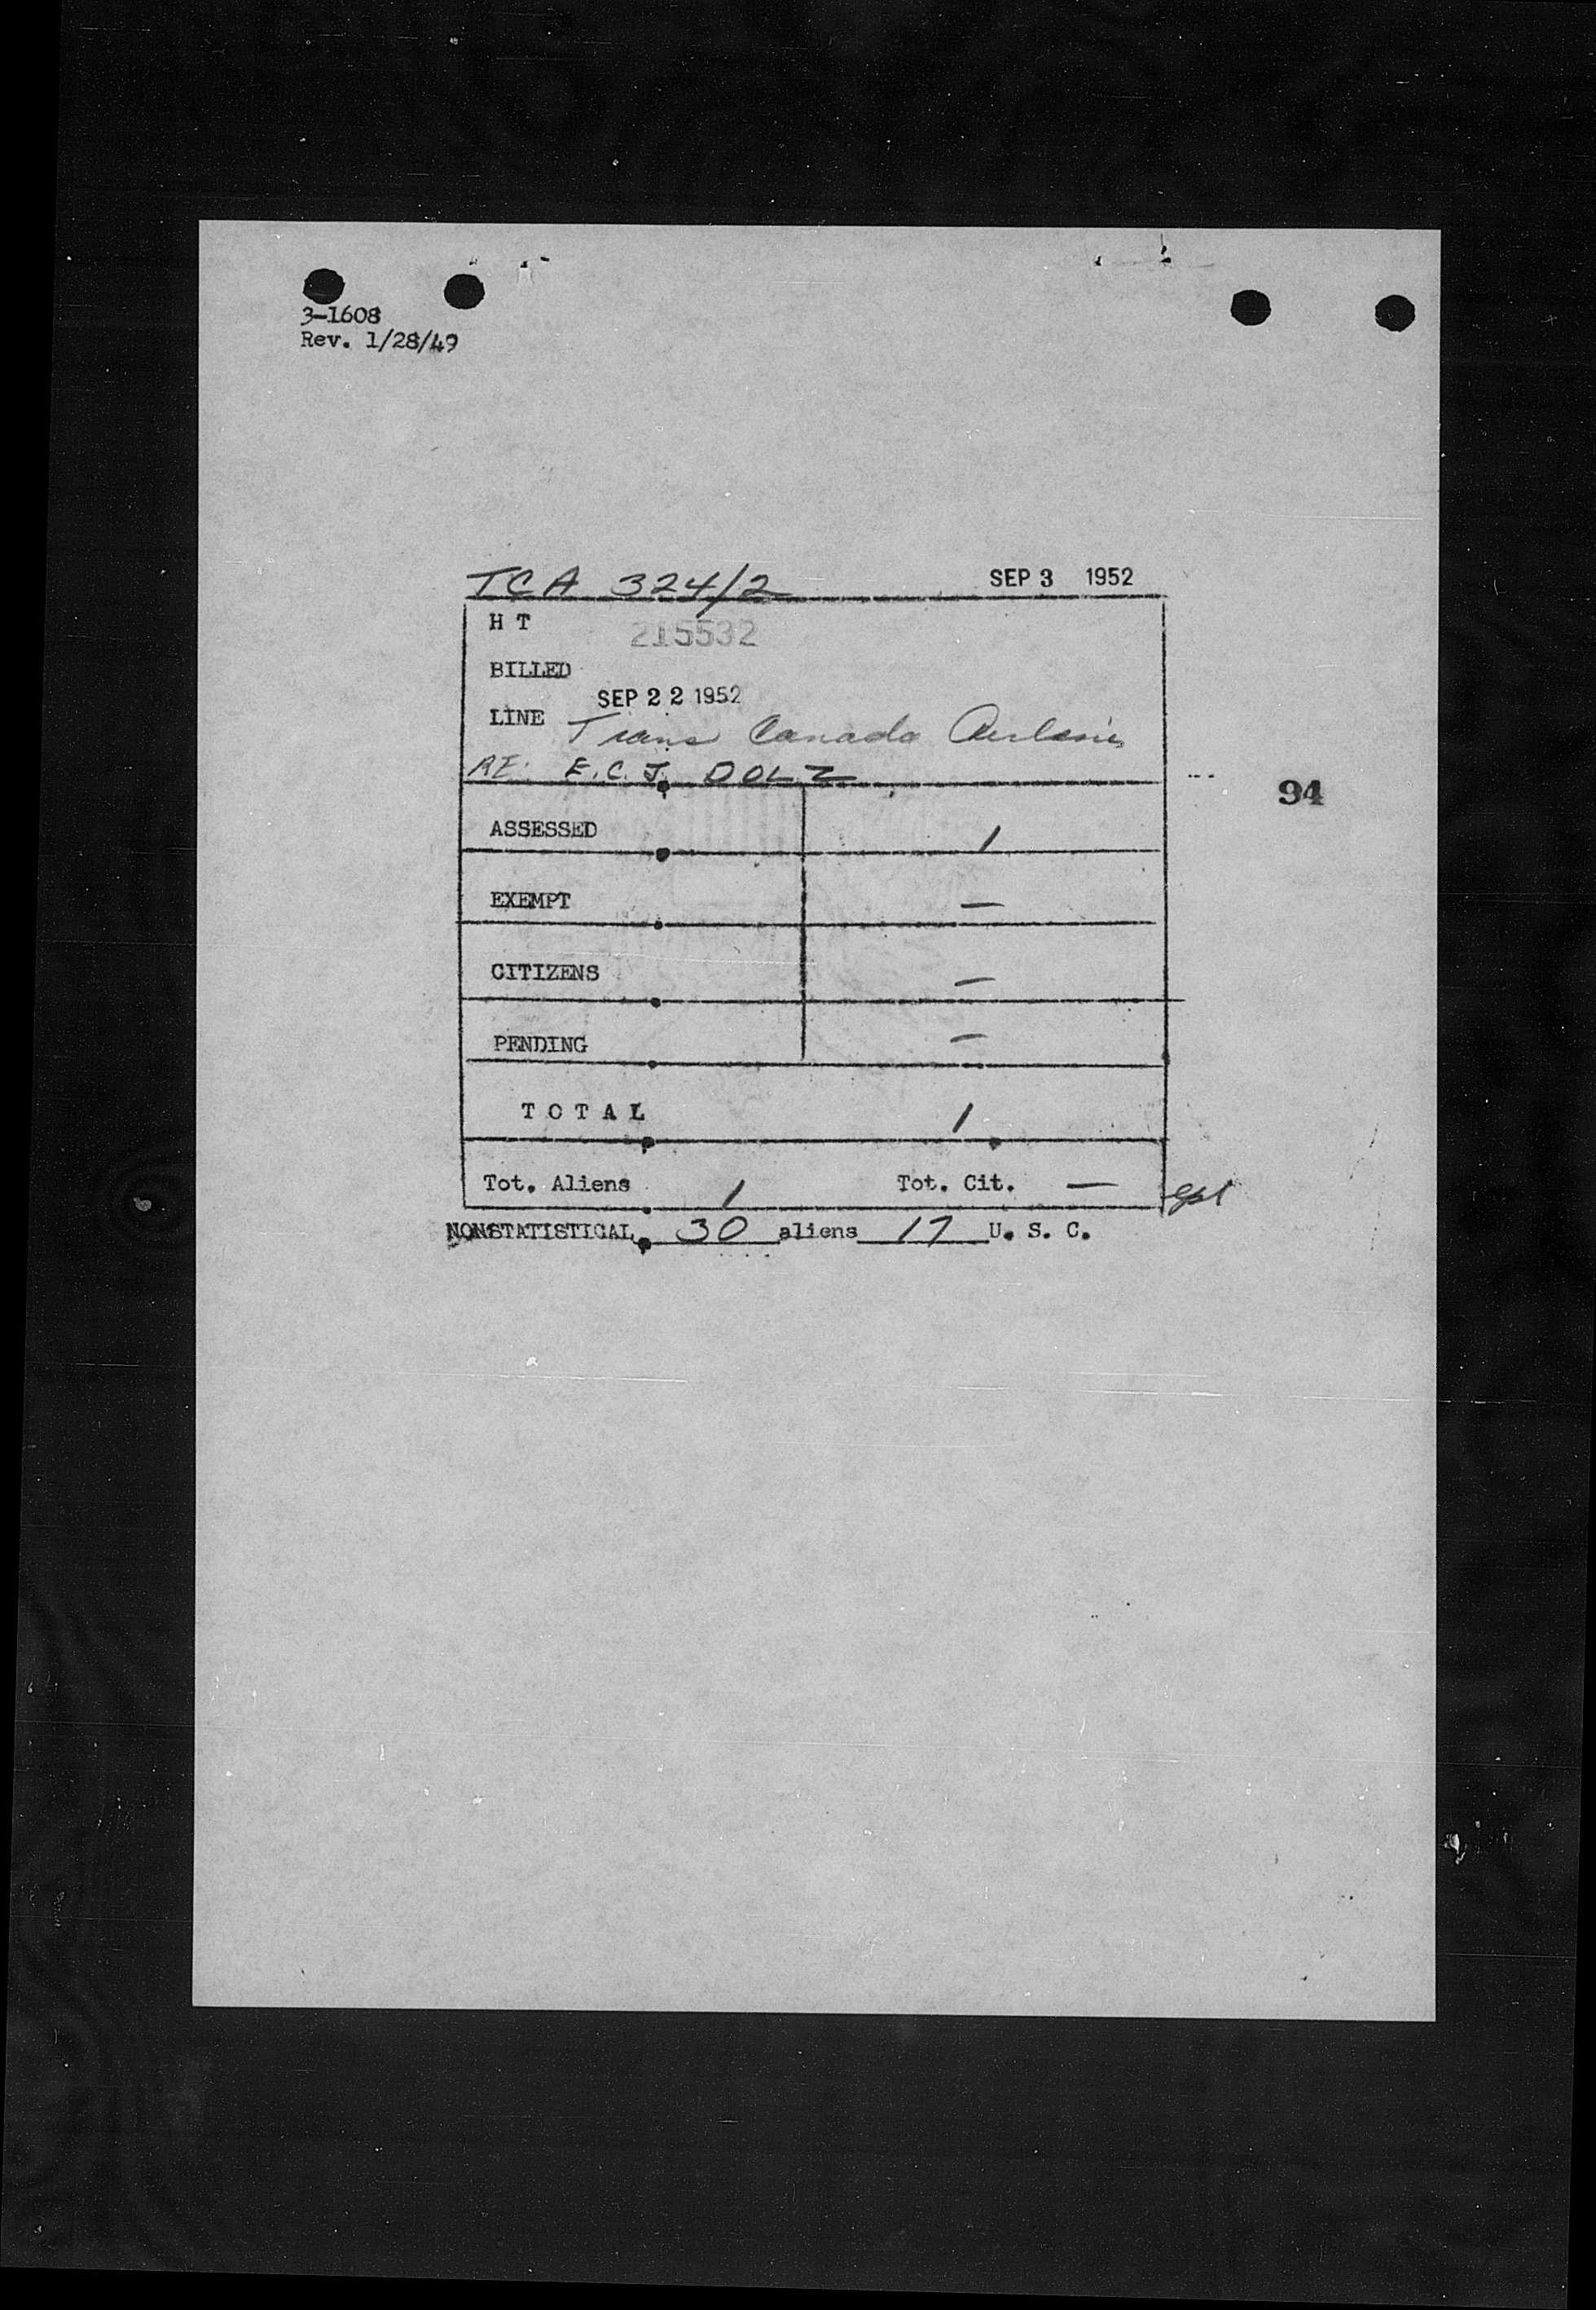 3-1608
Rev. 1/28/49
TCA 324/2 SEP 3 1952
H T 215532
BILLED
SEP 22 1952
LINE Trans Canada Airlines
RE: E.C.J. DOLZ
94
ASSESSED 1
EXEMPT —
CITIZENS —
PENDING —
TOTAL 1
Tot. Aliens 1 Tot. Cit. —
NONSTATISTICAL 30 aliens 17 U. S. C.